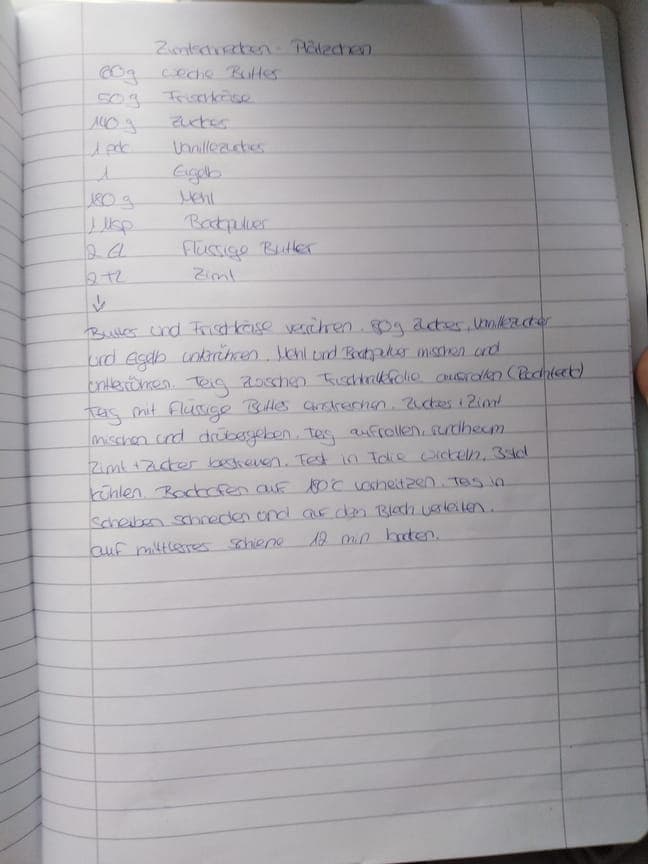 Zimtschnecken - Plätzchen
60g weche Butter
50g Frischkäse
140g Zucker
1 pck Vanillezucker
1 Eigelb
180g Mehl
1 Msp Backpulver
2 El Flüssige Butter
2 TL Zimt
↓
Butter und Frischkäse verrühren. 80g Zucker, Vanillezucker
und Eigelb unterrühren. Mehl und Backpulver mischen und
unterrühren. Teig zwischen Frischhaltefolie ausrollen (Rechteck)
Teig mit Flüssige Butter einstreichen. Zucker + Zimt
mischen und drübergeben. Teig aufrollen,
Zimt + Zucker bestreuen. Fest in Folie wickeln, 3std
kühlen. Backofen auf 180°C vorheitzen. Teig in
Scheiben schneiden und auf den Blech verteilen.
auf mittleres Schiene 12 min backen.